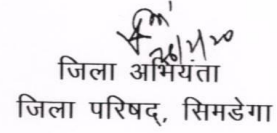 जिला अभियंता
जिला परिषद्, सिमडेगा